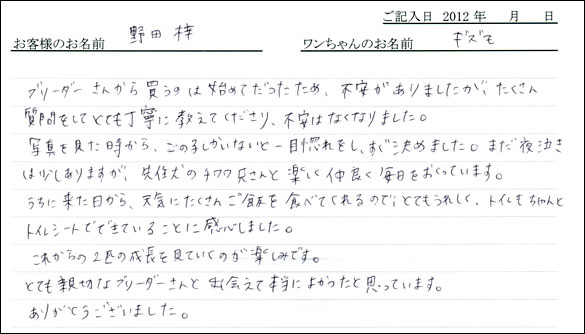 ご記入日 2012 年 月 日
お客様のお名前 野田 梓 ワンちゃんのお名前 ギズモ
ブリーダーさんから買うのは始めてだったため、不安がありましたが、たくさん
質問をしてとても丁寧に教えてくださり、不安はなくなりました。
写真を見た時から、この子しかいないと一目惚れをし、すぐ決めました。まだ夜泣き
は少しありますが、先住犬のチワワ兄さんと楽しく仲良く毎日をおくっています。
うちに来た日から、元気にたくさんご飯を食べてくれるので、とてもうれしく、トイレもちゃんと
トイレシートでできていることに感心しました。
これからの2匹の成長を見ていくのが楽しみです。
とても親切なブリーダーさんと出会えて本当によかったと思っています。
ありがとうございました。